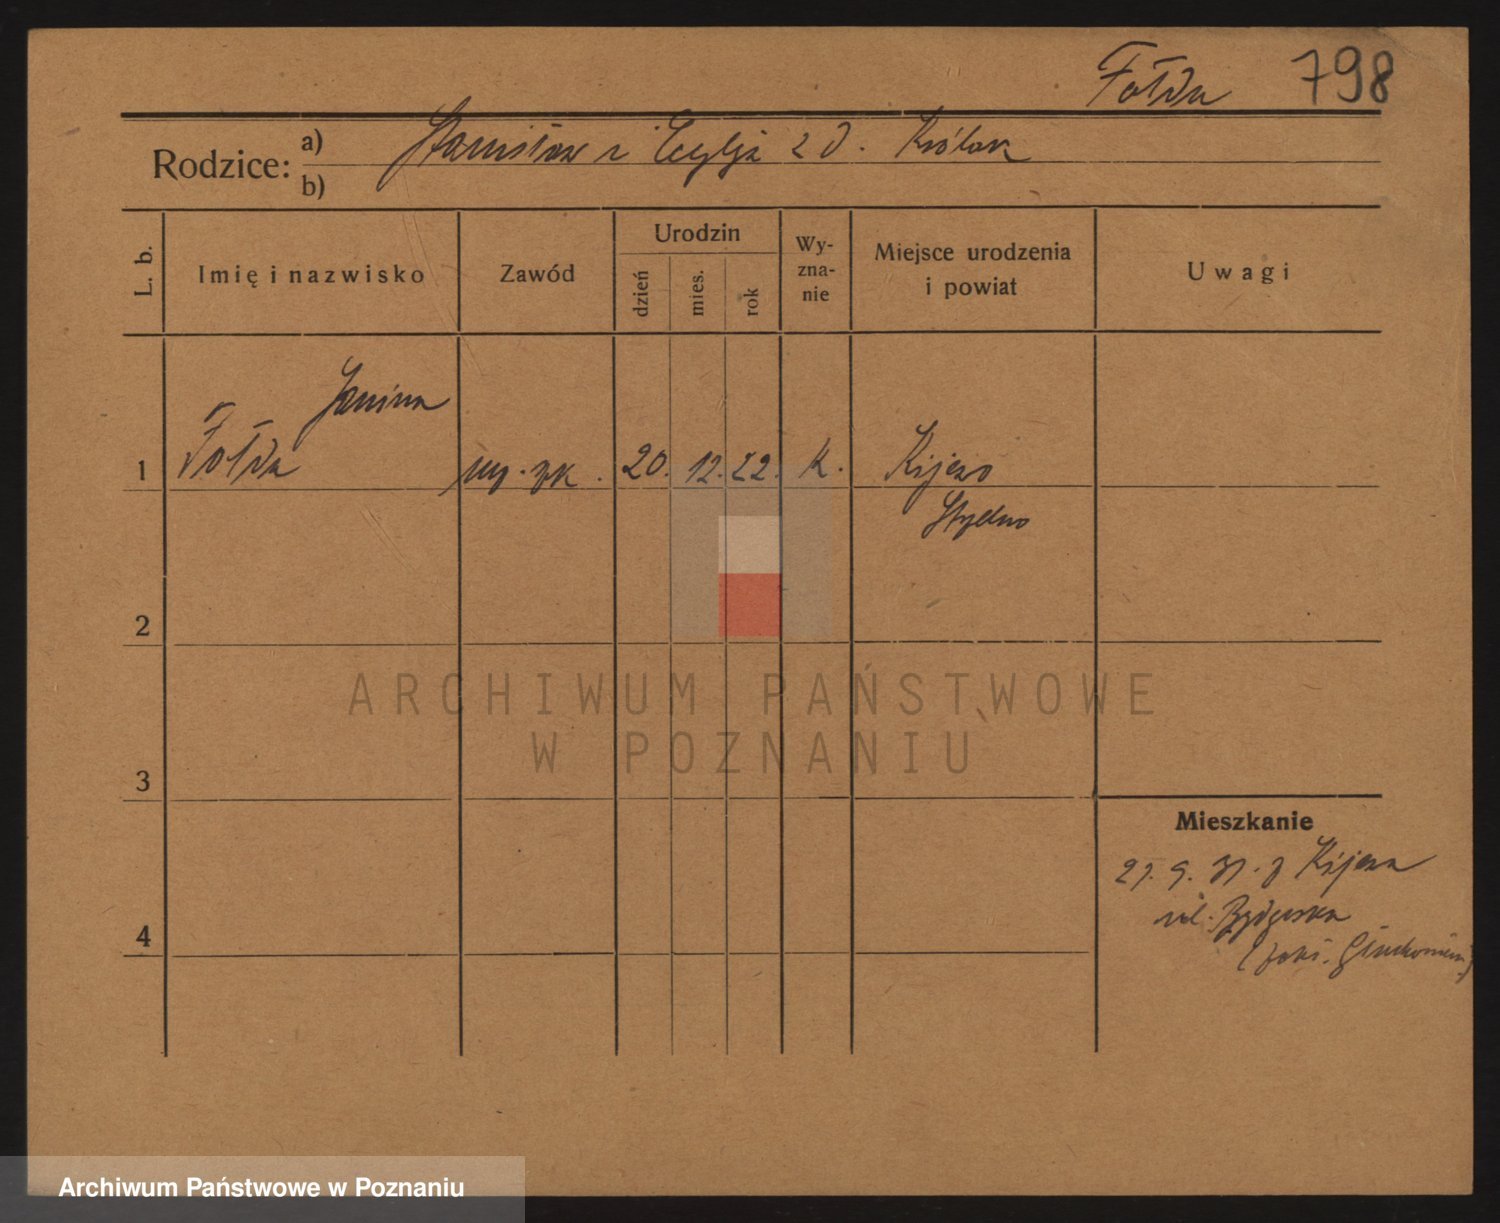 Fołda 798
Rodzice: a) Stanisław i Cecylja z d. Królak
b)
L. b.
Imię i nazwisko
Zawód
Urodzin
dzień
mies.
rok
Wy-
zna-
nie
Miejsce urodzenia
i powiat
Uwagi
Janina
1 Fołda 20. 12. 22. k. Kijewo
2
3
4
Mieszkanie
z Kijewa
ul. Bydgoska
ARCHIWUM PAŃSTWOWE
W POZNANIU
Archiwum Państwowe w Poznaniu